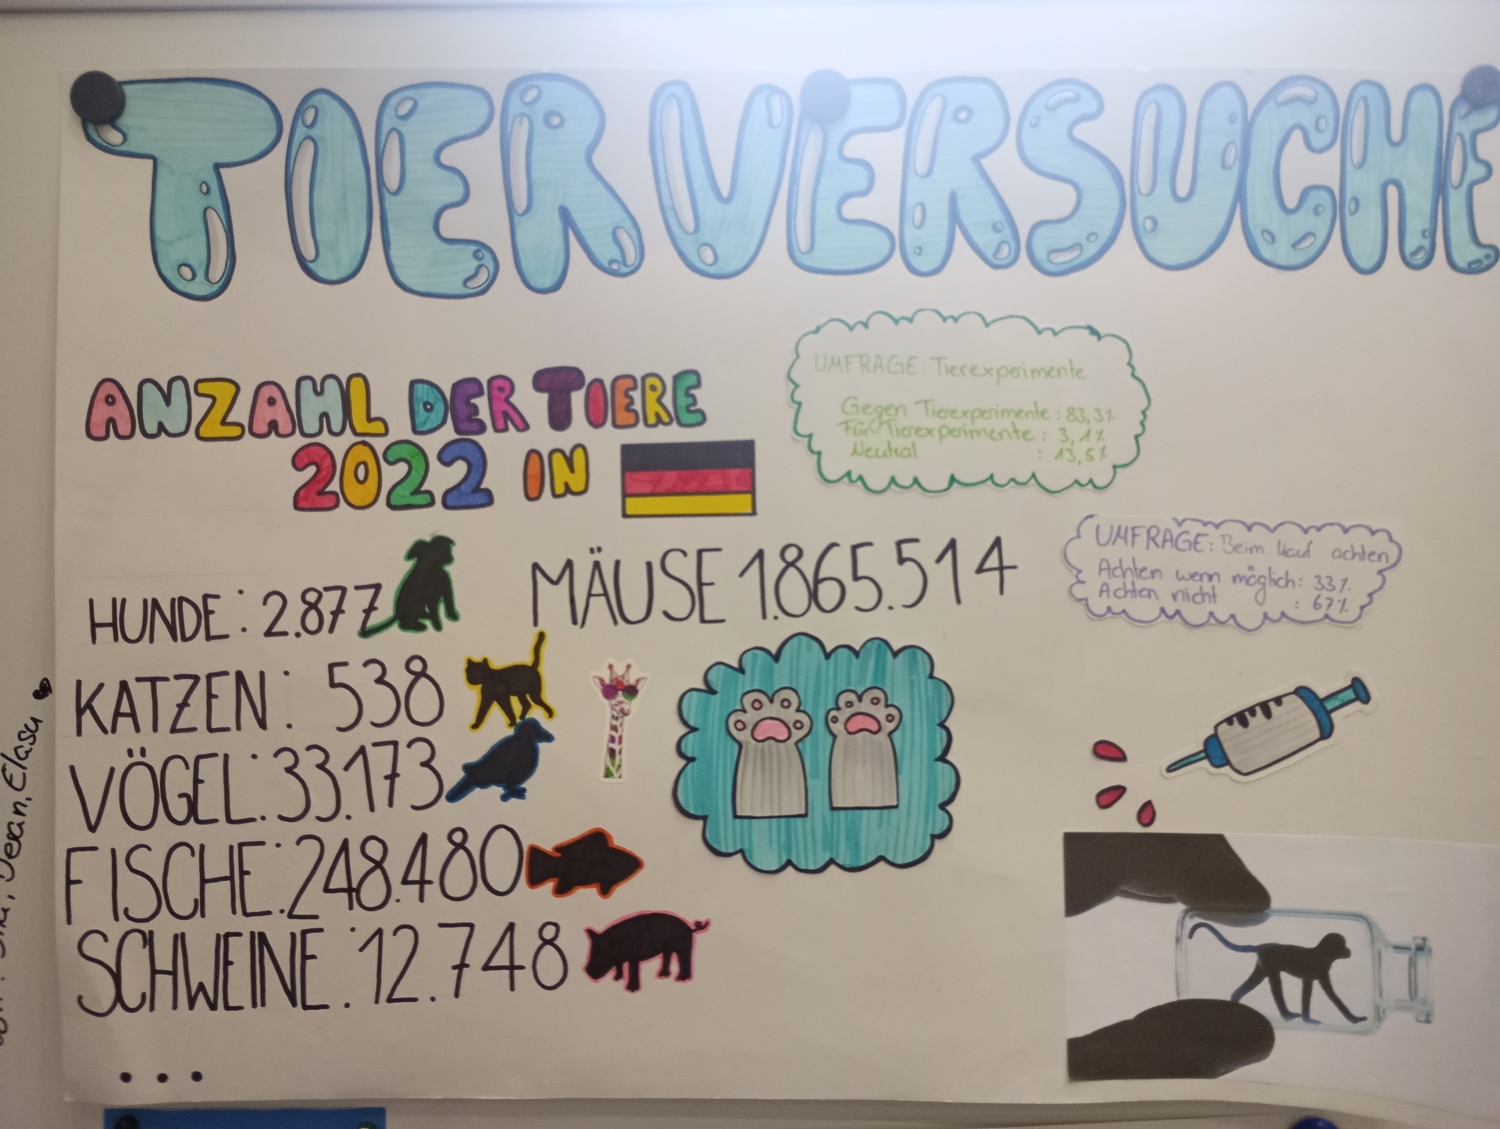 TIERVERSUCHE
ANZAHL DER TIERE
2022 IN
UMFRAGE: Tierexperimente
Gegen Tierexperimente : 83,3%
Für Tierexperimente : 3,1%
Neutral : 13,5%
UMFRAGE: Beim Kauf achten
Achten wenn möglich: 33%
Achten nicht : 67%
HUNDE: 2.877
MÄUSE 1.865.514
KATZEN: 538
VÖGEL: 33.173
FISCHE: 248.480
SCHWEINE: 12.748
...
Elasu